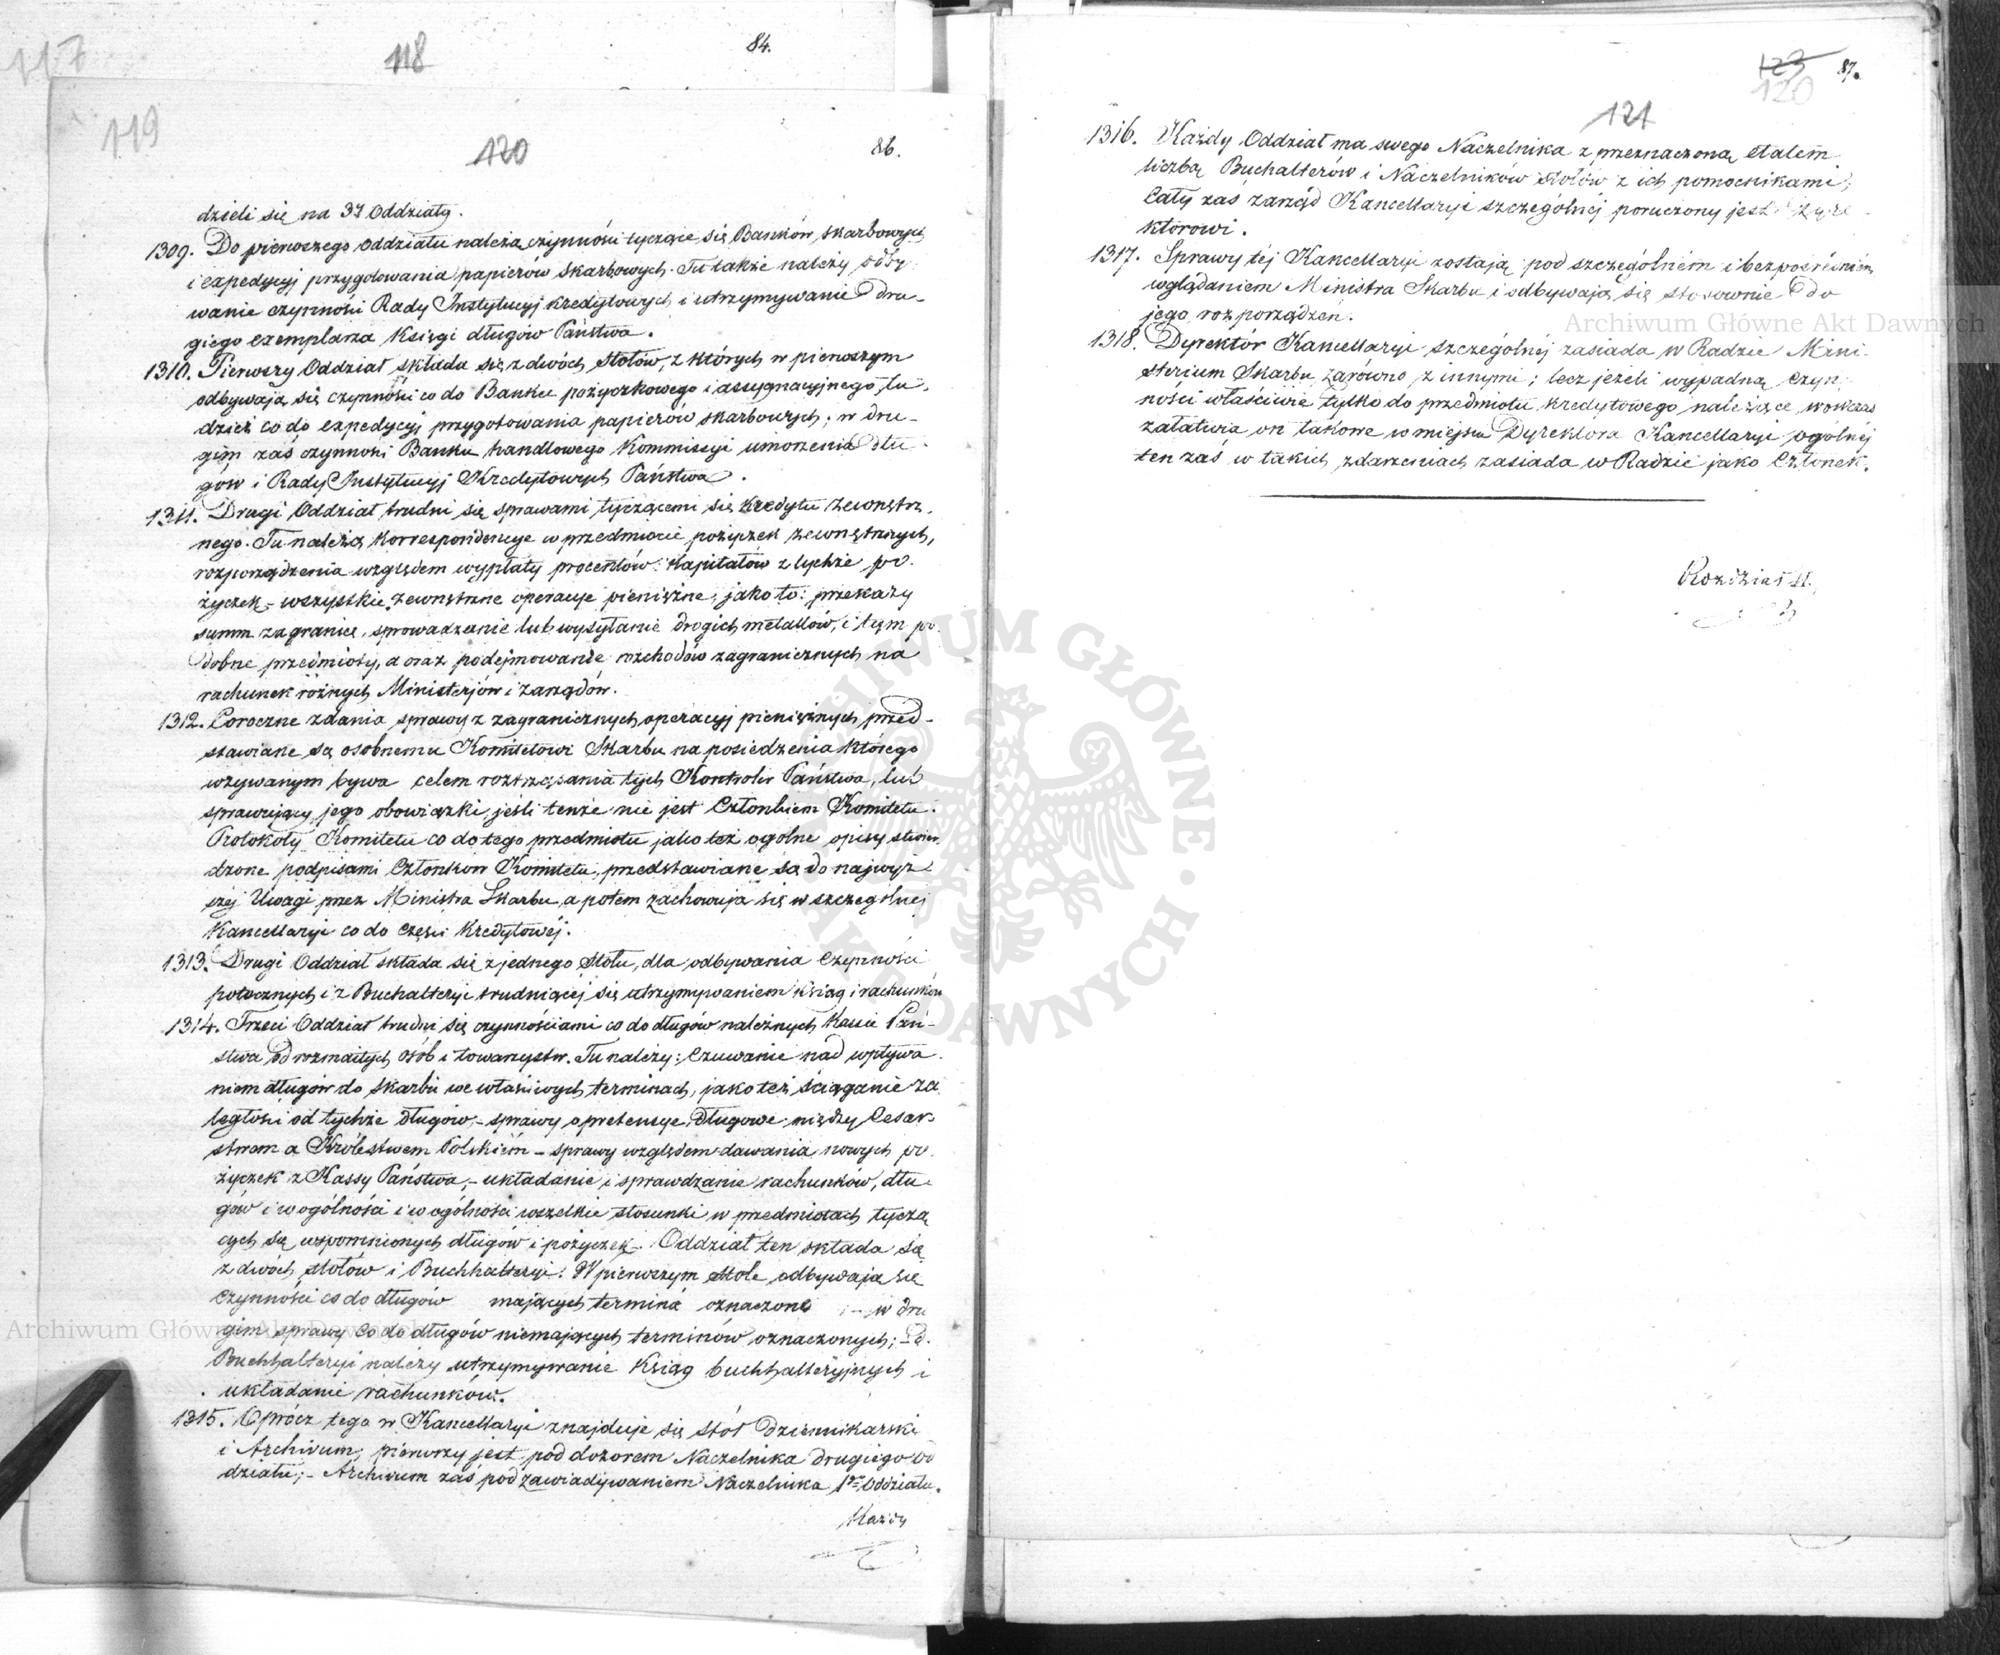 117
118
84.
119
120
86.
dzieli się na 3y Oddziały.
1309. Do pierwszego Oddziału należą czynności tyczące się Banków skarbowych
i expedycyj przygotowania papierów skarbowych. Tu także należy odby-
wanie czynności Rady Instytucyj kredytowych i utrzymywanie dru-
giego exemplarza Księgi długów Państwa.
1310. Pierwszy Oddział składa się z dwóch stołów, z których w pierwszym
odbywają się czynności co do Banku pożyczkowego i assygnacyjnego, tu-
dzież co do expedycyi przygotowania papierów skarbowych; w dru-
gim zaś czynności Banku handlowego Kommissyi umorzenia dłu-
gów i Rady Instytucyj Kredytowych Państwa.
1311. Drugi Oddział trudni się sprawami tyczącemi się Kredytu zewnętrz-
nego. Tu należą korrespondencye w przedmiocie pożyczek zewnętrznych,
rozporządzenia względem wypłaty procentów i Kapitałów z tychże po-
życzek, - wszystkie zewnętrzne operacye pieniężne, jako to: przekazy
summ zagranicę, sprowadzenie lub wysyłanie drogich metallów, i tym po-
dobne przedmioty, a oraz podejmowanie rozchodów zagranicznych na
rachunek różnych Ministerjów i zarządów.
1312. Coroczne zdania sprawy z zagranicznych operacyj pieniężnych przed-
stawiane są osobnemu Komitetowi Skarbu na posiedzenia którego
wzywanym bywa celem roztrząsania tych Kontroler Państwa, lub
sprawujący jego obowiązki, jeśli tenże nie jest Członkiem Komitetu.
Protokoły Komitetu co do tego przedmiotu jako też ogólne opisy stwier-
dzone podpisami Członków Komitetu, przedstawiane są do najwyż-
szej Uwagi przez Ministra Skarbu, a potem zachowują się w szczególnej
Kancellaryi co do części Kredytowéj.
1313. Drugi Oddział składa się z jednego Stołu, dla odbywania Czynności
potocznych i z Buchalteryi trudniącéj się utrzymywaniem Ksiąg i rachunków
1314. Trzeci Oddział trudni się czynnościami co do długów należnych Kassie Pań-
stwa od rozmaitych osób i towarzystw. Tu należy: Czuwanie nad wpływa-
niem długów do skarbu we właściwych terminach, jako też ściąganie za-
ległości od tychże długów, - sprawy o pretensye długowe między Cesar-
stwem a Królestwem Polskiém - sprawy względem dawania nowych po-
życzek z Kassy Państwa, - układanie i sprawdzanie rachunków, dłu-
gów i w ogólności i w ogólności wszelkie stosunki w przedmiotach tyczą
cych się wspomnionych długów i pożyczek. Oddział ten składa się
z dwóch stołów i Buchhalteryi. W pierwszym stole odbywają się
Czynności co do długów mających termina oznaczone w dru
gim sprawy co do długów niemających terminów oznaczonych; - do
Buchhalteryi należy utrzymywanie Ksiąg buchhalteryjnych i
układanie rachunków.
1315. Oprócz tego w Kancellaryi znajduje się stół dziennikarski
i Archivum; pierwszy jest pod dozorem Naczelnika drugiego od
działu; - Archivum zaś pod zawiadywaniem Naczelnika 1go Oddziału.
Każdy
123
120
87.
121
1316. Każdy Oddział ma swego Naczelnika z przeznaczoną etatem
liczbą Buchalterów i Naczelników stołów z ich pomocnikami;
Cały zaś zarząd Kancellaryi szczególnéj poruczony jest Dyre-
ktorowi.
1317. Sprawy téj Kancellaryi zostają pod szczególném i bezpośredniem
wglądaniem Ministra Skarbu i odbywają się stosownie do
jego rozporządzeń.
1318. Dyrektór Kancellaryi szczególnéj zasiada w Radzie Mini-
sterium Skarbu zarówno z innymi; lecz jeżeli wypadną czyn-
ności właściwie tylko do przedmiotu kredytowego należące, wówczas
załatwia on takowe w miejscu Dyrektora Kancellaryi ogólnéj
ten zaś w takich zdarzeniach zasiada w Radzie jako Członek.
Rozdział II.
Archiwum Główne Akt Dawnych
Archiwum Główne Akt Dawnych
ARCHIWUM GŁÓWNE AKT DAWNYCH